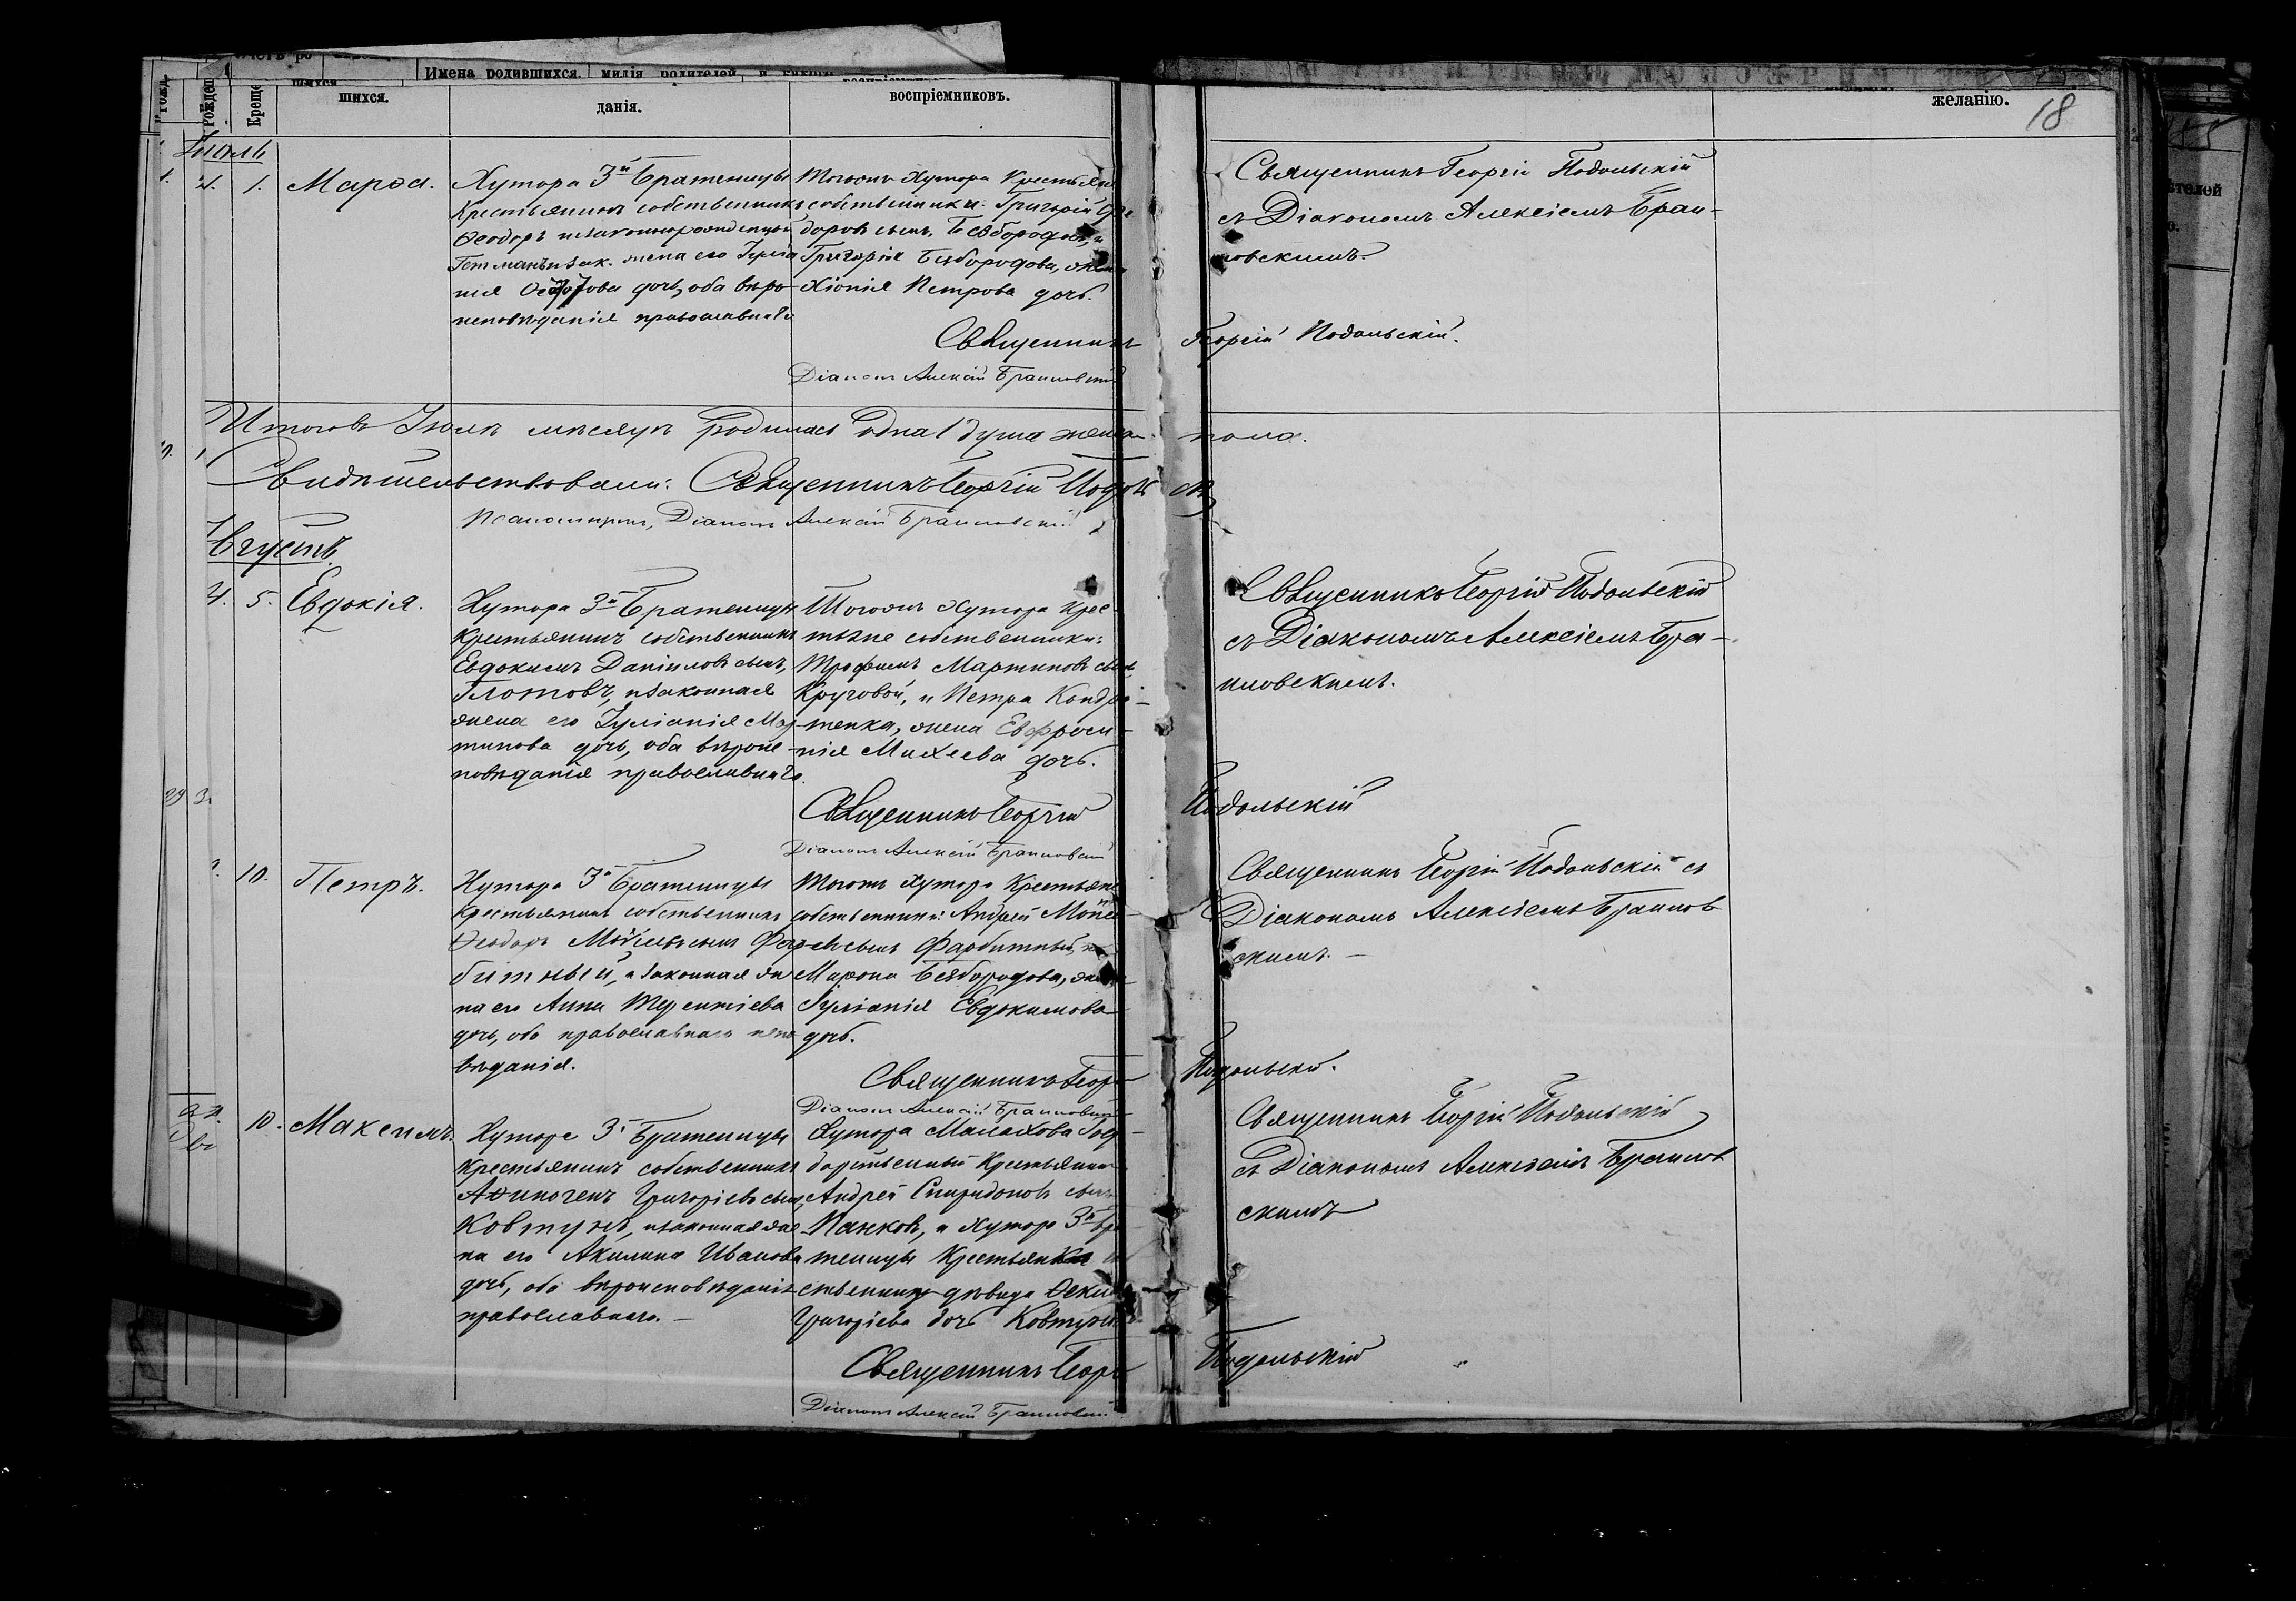 Имена родившихся.
шихся.
данія.
воспріемниковъ.
желанію.
18
Іюль
1. 1. Марѳа.
Хутора 3й Братеницы
Крестьянинъ собственникъ
Ѳеодоръ
жена его Іуліа
нія дочь, оба вѣро
исповѣданія православнаго
Тогожъ Хутора Крестьяне
собственники: Григорій Ѳео
доровъ сынъ Безбородовъ, и
Григорія Безбородова, жена
Хіонія Петрова дочь.
Священникъ Георгій Подольскій
съ Діакономъ Алексіемъ Браи-
ловскимъ.
Священникъ Георгій Подольскій.
Діаконъ Алексій Браиловскій
Итого въ Іюлѣ мѣсяцѣ родилась одна 1 душа женска пола.
Свидѣтельствовали: Священникъ Георгій Подольскій
Псаломщикъ, Діаконъ Алексій Браиловскій
Августъ.
4. 5. Евдокія.
Хутора 3й Братеницы
Крестьянинъ собственникъ
Евдокимъ Даніиловъ сынъ,
Глотовъ, и законная
жена его Іуліанія Мар-
тинова дочь, оба вѣроис-
повѣданія православнаго.
Тогожъ Хутора Крес-
тьяне собственники:
Трофимъ Мартиновъ сынъ
Круговой, и Петра Кондра-
тенка, жена Евфроси-
нія Михеева дочь.
Священникъ Георгій Подольскій
съ Діакономъ Алексіемъ Бра-
иловскимъ.
Священникъ Георгій Подольскій
Діаконъ Алексій Браиловскій
10. Петръ.
Хутора 3й Братеницы
Крестьянинъ собственникъ
Ѳеодоръ Моѵсеевъ сынъ Фар-
битный, и законная же
на его Анна Терентіева
дочь, оба православнаго испо
вѣданія.
Тогожъ Хутора Крестьяне
собственники: Андрей Моѵсе-
евъ сынъ Фарбитный, и
Мирона Безбородова, жена
Іуліанія Евдокимова
дочь.
Священникъ Георгій Подольскій съ
Діакономъ Алексіемъ Браилов
скимъ. -
Священникъ Георгій Подольскій.
Діаконъ Алексій Браиловскій
10. Максимъ.
Хутора 3й Братеницы
Крестьянинъ собственникъ
Аѳиногенъ Григоріевъ сынъ,
Ковтунъ, и законная же
на его Акилина Иванова
дочь, оба вѣроисповѣданія
православнаго. -
Хутора Малахова Госу-
дарственный Крестьянинъ
Андрей Спиридоновъ сынъ
Панковъ, и хутора 3й Бра
теницы Крестьянка соб
ственница дѣвица Ѳекла
Григоріева дочь Ковтунъ
Священникъ Георгій Подольскій
съ Діакономъ Алексіемъ Браилов
скимъ
Священникъ Георгій Подольскій
Діаконъ Алексій Браиловскій